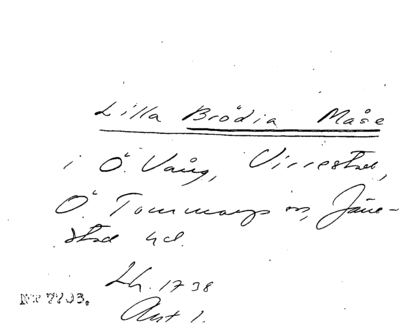 Lilla Brödia Måse
i Ö. Vång, Virrestad,
Ö. Tommarps sn, Järre-
stad hd.
Lh. 1738
Akt 1.